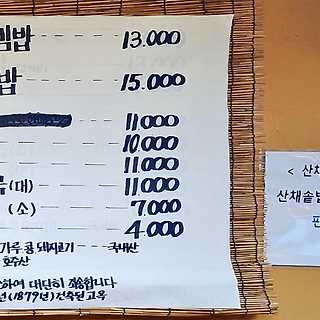 빔밥 13.000
밥 15.000
11,000
10,000
11.000
(대) 11000
(소) 7,000
4.000
가루 콩 돼지고기 국내산
호주산
하여 대단히 죄송합니다
년(1879년)건축된 고옥
< 산채
산채솥밥
판